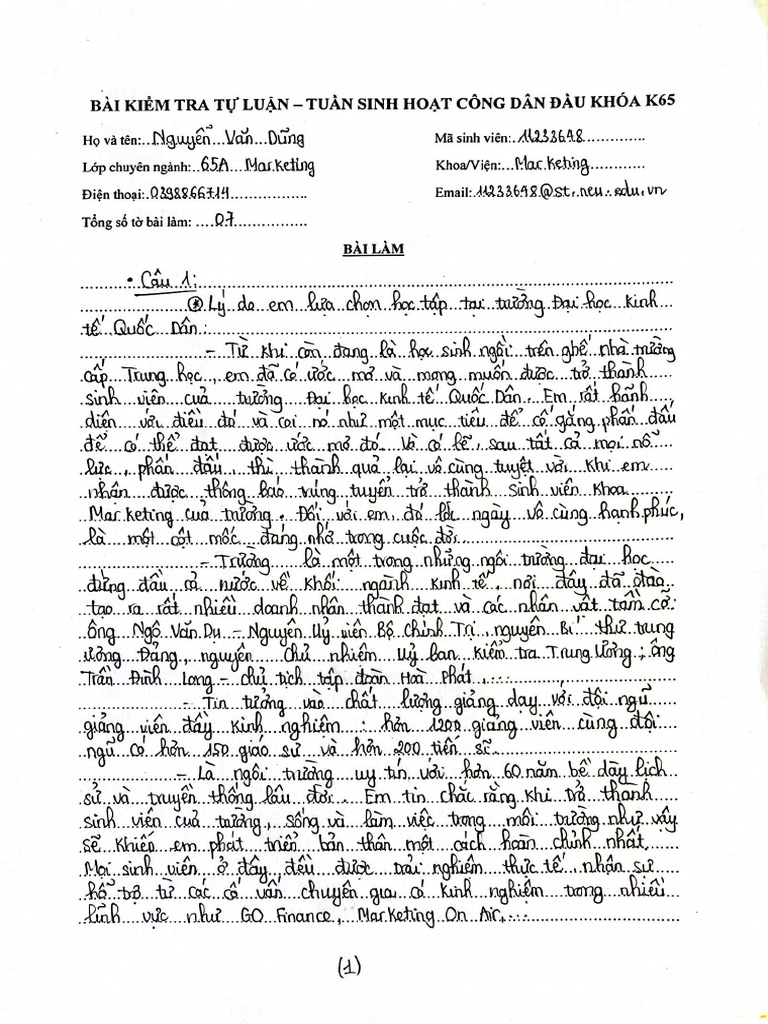 BÀI KIỂM TRA TỰ LUẬN – TUẦN SINH HOẠT CÔNG DÂN ĐẦU KHÓA K65
Họ và tên: Nguyễn Văn Dũng Mã sinh viên: 11233648
Lớp chuyên ngành: 65A Marketing Khoa/Viện: Marketing
Điện thoại: 0398866714 Email: 11233648@st.neu.edu.vn
Tổng số tờ bài làm: 07
BÀI LÀM
• Câu 1:
⊛ Lý do em lựa chọn học tập tại trường Đại học Kinh
tế Quốc Dân:
- Từ khi còn đang là học sinh ngồi trên ghế nhà trường
cấp Trung học, em đã có ước mơ và mong muốn được trở thành
sinh viên của trường Đại học Kinh tế Quốc Dân. Em rất hãnh
diện với điều đó và coi nó như một mục tiêu để cố gắng phấn đấu
để có thể đạt được ước mơ đó. Và có lẽ, sau tất cả mọi nỗ
lực, phấn đấu, thì thành quả lại vô cùng tuyệt vời khi em
nhận được thông báo trúng tuyển trở thành sinh viên khoa
Marketing của trường. Đối với em, đó là ngày vô cùng hạnh phúc,
là một cột mốc đáng nhớ trong cuộc đời.
- Trường là một trong những ngôi trường đại học
đứng đầu cả nước về khối ngành kinh tế, nơi đây đã đào
tạo ra rất nhiều doanh nhân thành đạt và các nhân vật tầm cỡ:
ông Ngô Văn Dụ - Nguyên Uỷ viên Bộ Chính Trị, nguyên Bí thư trung
ương Đảng, nguyên Chủ nhiệm Uỷ ban kiểm tra Trung Ương; ông
Trần Đình Long - chủ tịch tập đoàn Hoà Phát,...
- Tin tưởng vào chất lượng giảng dạy với đội ngũ
giảng viên đầy kinh nghiệm: hơn 1200 giảng viên cùng đội
ngũ có hơn 150 giáo sư và hơn 200 tiến sĩ.
- Là ngôi trường uy tín với hơn 60 năm bề dày lịch
sử và truyền thống lâu đời. Em tin chắc rằng khi trở thành
sinh viên của trường, sống và làm việc trong môi trường như vậy
sẽ khiến em phát triển bản thân một cách hoàn chỉnh nhất.
Mọi sinh viên ở đây đều được trải nghiệm thực tế, nhận sự
hỗ trợ từ các cố vấn chuyên gia có kinh nghiệm trong nhiều
lĩnh vực như GO Finance, Marketing On Air,...
(1)